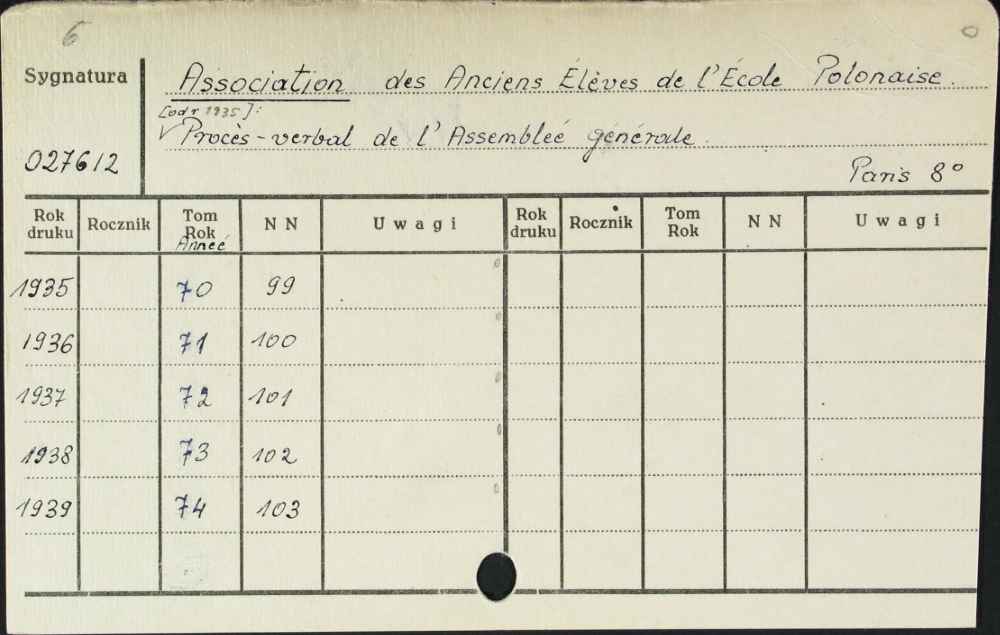 6
Sygnatura
Association des Anciens Élèves de l'École Polonaise.
[od r 1935]:
Procès-verbal de l'Assembleé générale.
027612
Paris 8°
Rok druku Rocznik Tom Rok Anneé N N Uwagi Rok druku Rocznik Tom Rok N N Uwagi
1935 70 99
1936 71 100
1937 72 101
1938 73 102
1939 74 103